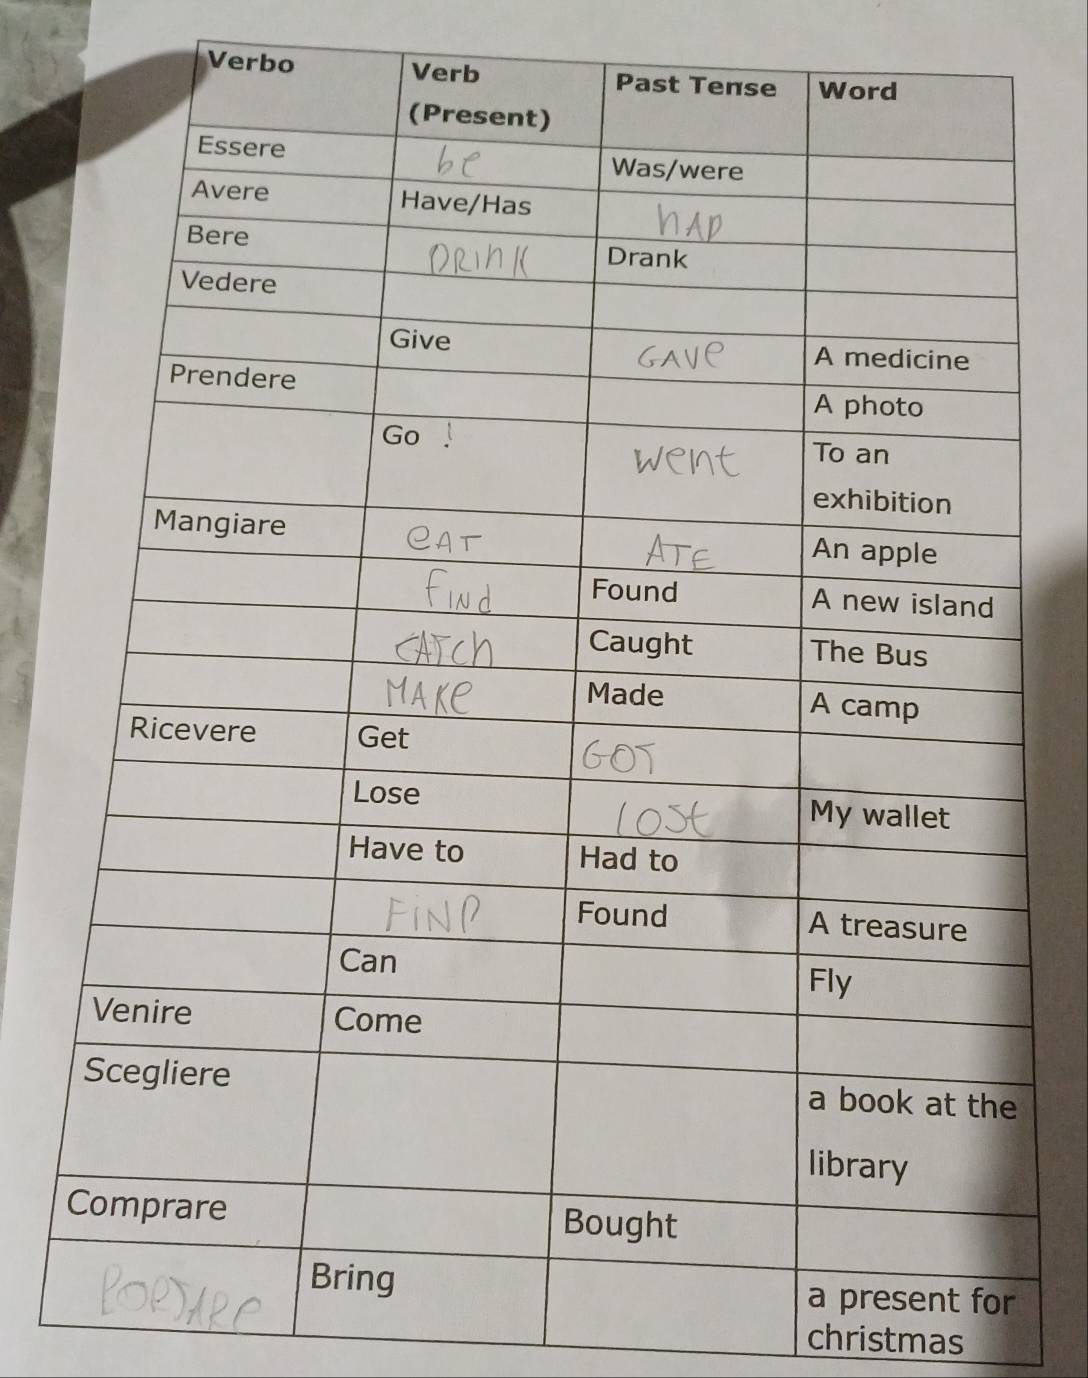 Verbo Verb (Present) Past Tense Word
Essere be Was/were
Avere Have/Has HAD
Bere DRINK Drank
Vedere
Give GAVe A medicine
Prendere A photo
Go ! went To an
exhibition
Mangiare eAT ATE An apple
FINd Found A new island
CATCh Caught The Bus
MAKe Made A camp
Ricevere Get GOT
Lose lOSt My wallet
Have to Had to
FiND Found A treasure
Can Fly
Venire Come
Scegliere a book at the
library
Comprare Bought
PORTARe Bring a present for
christmas